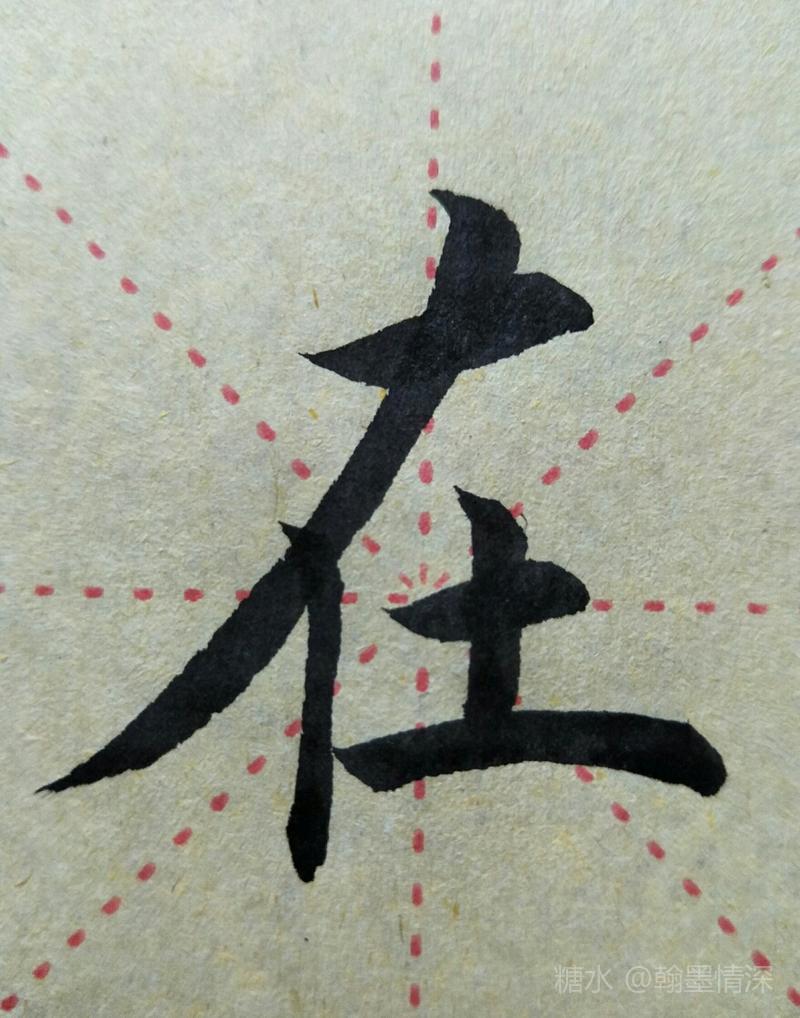 在
糖水 @翰墨情深